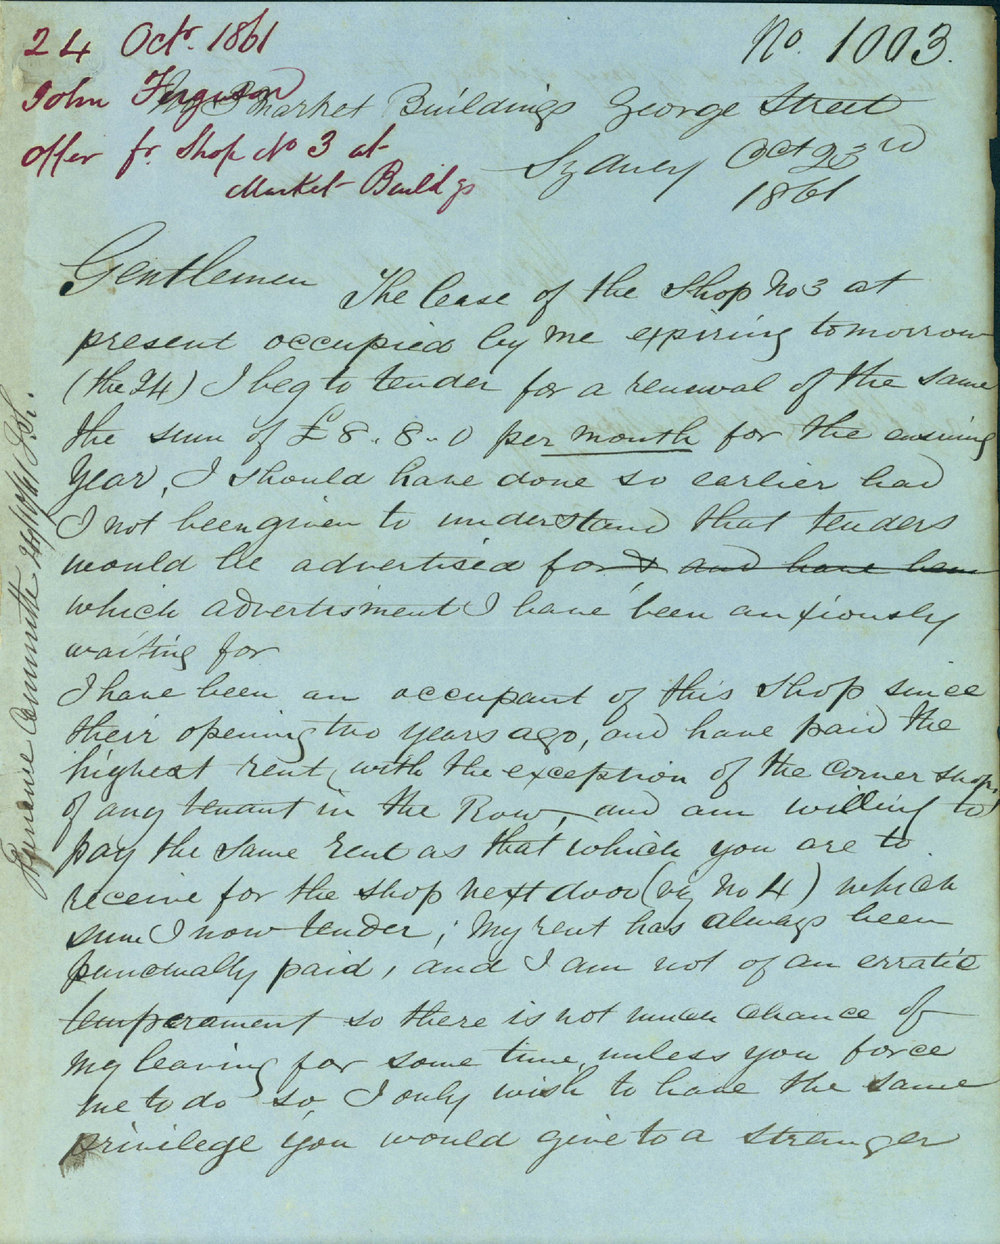 24 Octr. 1861
No. 1003.
John Ferguson
offer fr. Shop No 3 at
Market Buildgs
3 Market Buildings George Street
Sydney Oct 23rd
1861
Gentlemen The lease of the Shop No 3 at
present occupied by me expiring tomorrow
(the 24) I beg to tender for a renewal of the same
the sum of £8.8.0 per month for the ensuing
Year, I should have done so earlier had
I not been given to understand that tenders
would be advertised for & and have been
which advertisment I have been anxiously
waiting for
I have been an occupant of this Shop since
their opening two years ago, and have paid the
highest rent (with the exception of the Corner shops)
of any tenant in the Row, and am willing to
pay the same rent as that which you are to
receive for the shop next door (viz No 4) which
sum I now tender; My rent has always been
punctually paid, and I am not of an erratic
temperament so there is not much chance of
my leaving for some time unless you force
me to do so, I only wish to have the same
privilege you would give to a stranger
Finance Committee 24/10/61